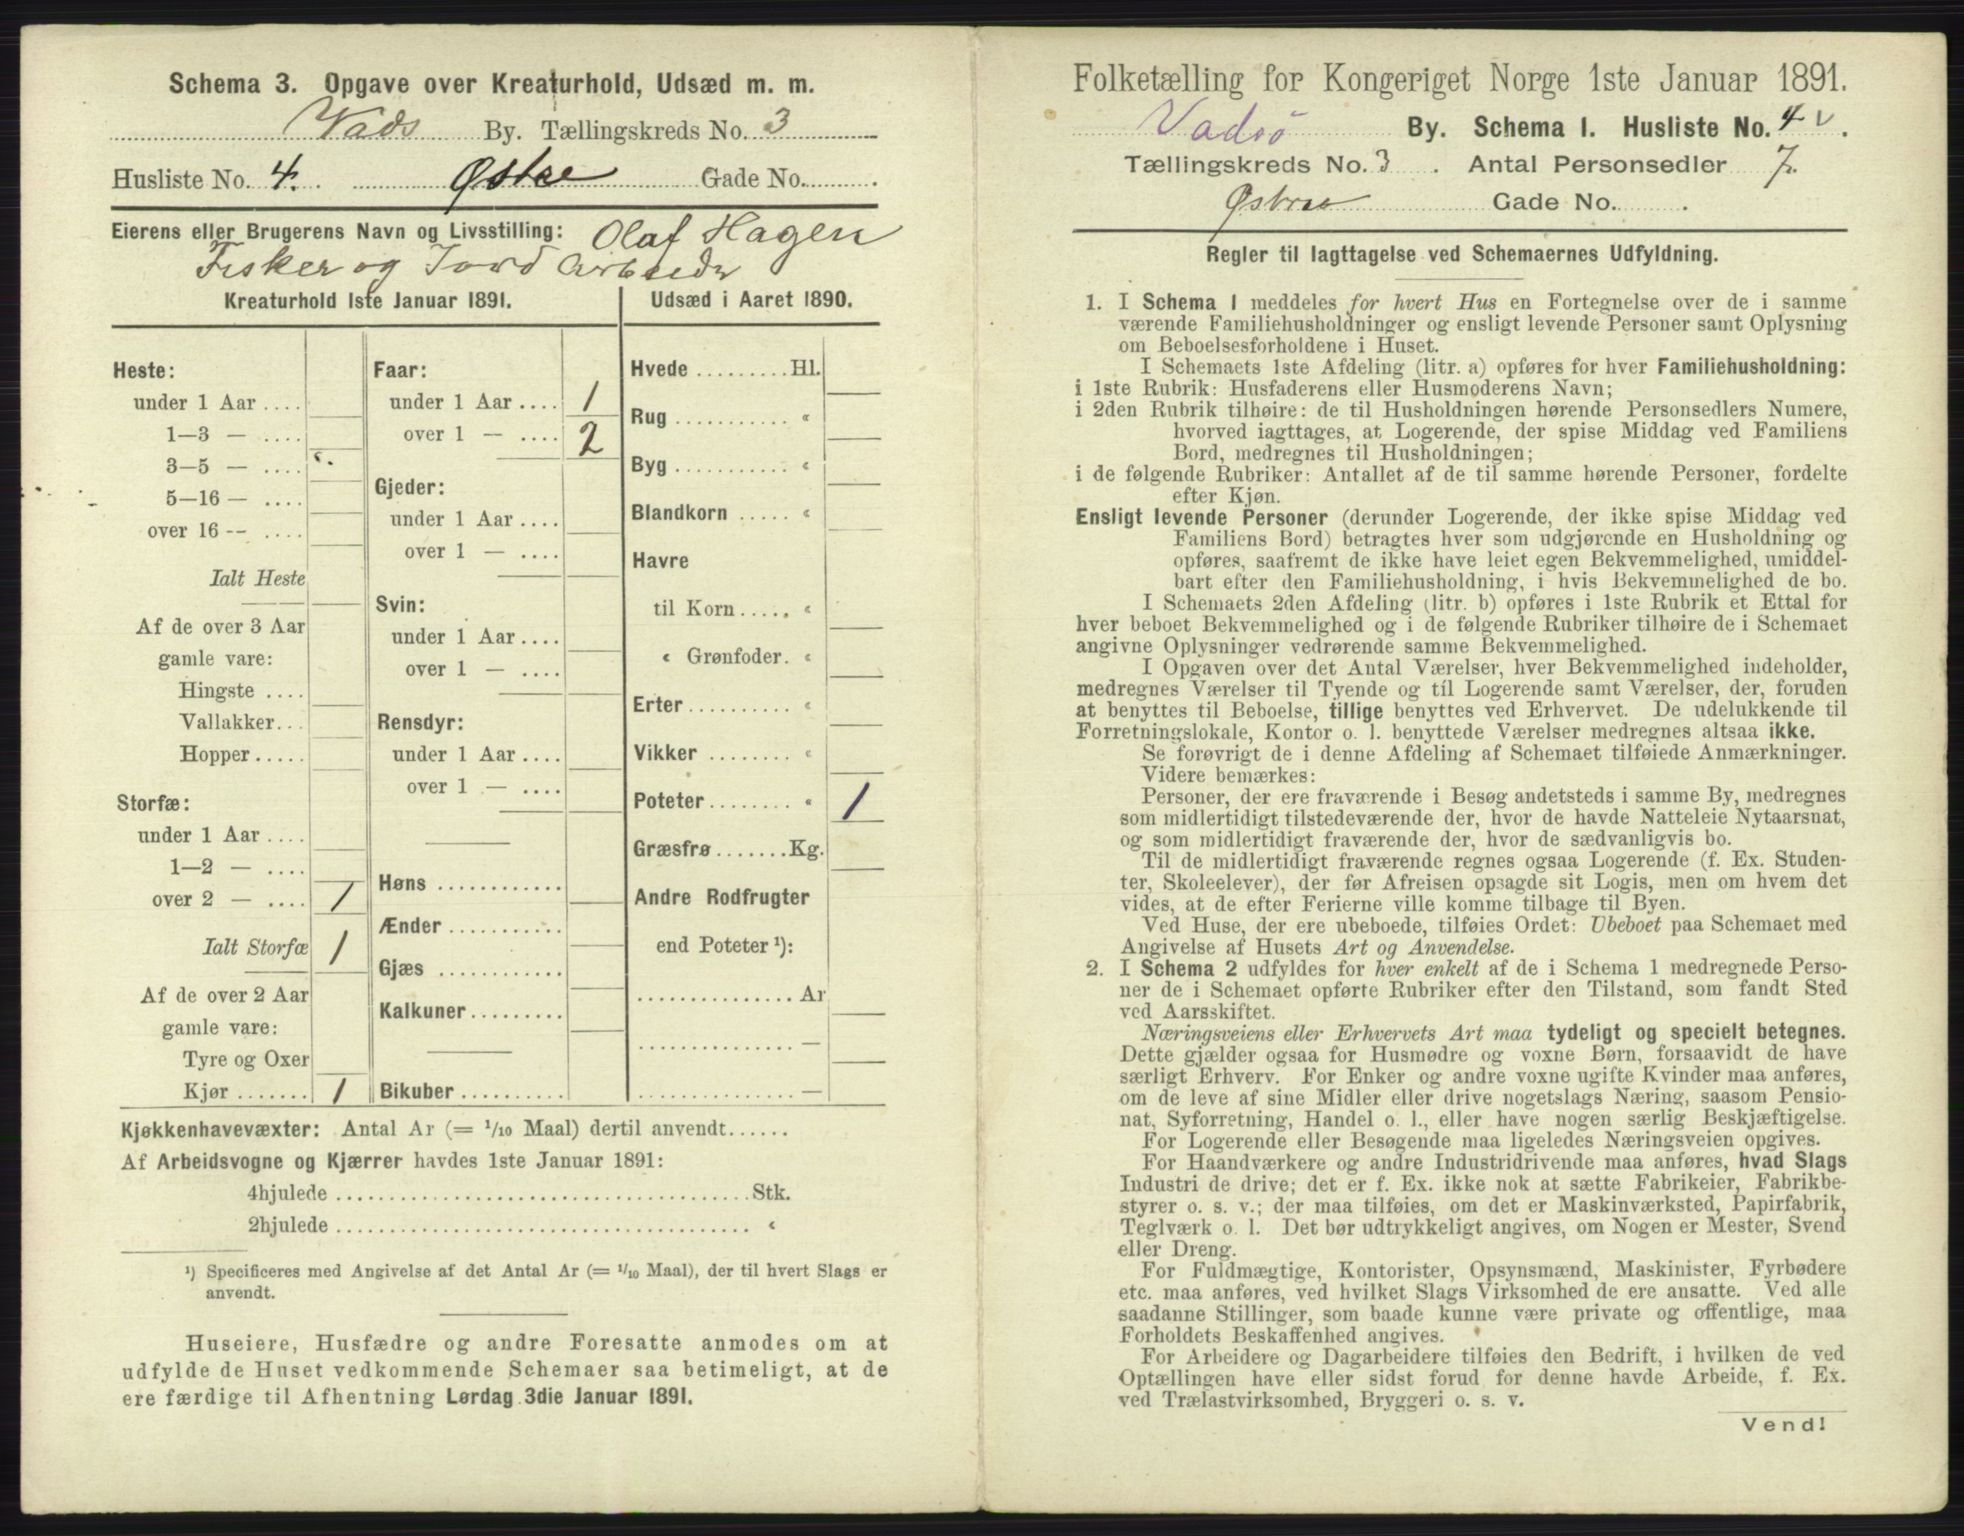 Schema 3. Opgave over Kreaturhold, Udsæd m. m.
Vads By. Tællingskreds No. 3
Husliste No. 4. Østre Gade No.
Eierens eller Brugerens Navn og Livsstilling: Olaf Hagen
Fisker og Jord Arbeider
Kreaturhold 1ste Januar 1891.
Heste:
under 1 Aar ....
1—3 — ....
3—5 — ....
5—16 — ....
over 16 — ....
Ialt Heste
Af de over 3 Aar
gamle vare:
Hingste ....
Vallakker...
Hopper.....
Storfæ:
under 1 Aar ....
1—2 — ....
over 2 — .... 1
Ialt Storfæ 1
Af de over 2 Aar
gamle vare:
Tyre og Oxer
Kjør ....... 1
Faar:
under 1 Aar .... 1
over 1 — .... 2
Gjeder:
under 1 Aar ....
over 1 — ....
Svin:
under 1 Aar ....
over 1 — ....
Rensdyr:
under 1 Aar ....
over 1 — ....
Høns ............
Ænder ...........
Gjæs ............
Kalkuner.........
Bikuber ..........
Udsæd i Aaret 1890.
Hvede .........Hl.
Rug ........... «
Byg ........... «
Blandkorn ..... «
Havre
til Korn ..... «
« Grønfoder. «
Erter.......... «
Vikker ........ «
Poteter........ « 1
Græsfrø.......Kg.
Andre Rodfrugter
end Poteter ¹):
............... Ar
............... —
............... —
Kjøkkenhavevæxter: Antal Ar (= 1/10 Maal) dertil anvendt......
Af Arbeidsvogne og Kjærrer havdes 1ste Januar 1891:
4hjulede ........................................ Stk.
2hjulede ........................................ «
¹) Specificeres med Angivelse af det Antal Ar (= 1/10 Maal), der til hvert Slags er
anvendt.
Huseiere, Husfædre og andre Foresatte anmodes om at
udfylde de Huset vedkommende Schemaer saa betimeligt, at de
ere færdige til Afhentning Lørdag 3die Januar 1891.
Folketælling for Kongeriget Norge 1ste Januar 1891.
Vadsö By. Schema 1. Husliste No. 4 v.
Tællingskreds No. 3. Antal Personsedler 7.
Østre Gade No. .
Regler til Iagttagelse ved Schemaernes Udfyldning.
1. I Schema 1 meddeles for hvert Hus en Fortegnelse over de i samme
værende Familiehusholdninger og ensligt levende Personer samt Oplysning
om Beboelsesforholdene i Huset.
I Schemaets 1ste Afdeling (litr. a) opføres for hver Familiehusholdning:
i 1ste Rubrik: Husfaderens eller Husmoderens Navn;
i 2den Rubrik tilhøire: de til Husholdningen hørende Personsedlers Numere,
hvorved iagttages, at Logerende, der spise Middag ved Familiens
Bord, medregnes til Husholdningen;
i de følgende Rubriker: Antallet af de til samme hørende Personer, fordelte
efter Kjøn.
Ensligt levende Personer (derunder Logerende, der ikke spise Middag ved
Familiens Bord) betragtes hver som udgjørende en Husholdning og
opføres, saafremt de ikke have leiet egen Bekvemmelighed, umiddel-
bart efter den Familiehusholdning, i hvis Bekvemmelighed de bo.
I Schemaets 2den Afdeling (litr. b) opføres i 1ste Rubrik et Ettal for
hver beboet Bekvemmelighed og i de følgende Rubriker tilhøire de i Schemaet
angivne Oplysninger vedrørende samme Bekvemmelighed.
I Opgaven over det Antal Værelser, hver Bekvemmelighed indeholder,
medregnes Værelser til Tyende og til Logerende samt Værelser, der, foruden
at benyttes til Beboelse, tillige benyttes ved Erhvervet. De udelukkende til
Forretningslokale, Kontor o. l. benyttede Værelser medregnes altsaa ikke.
Se forøvrigt de i denne Afdeling af Schemaet tilføiede Anmærkninger.
Videre bemærkes:
Personer, der ere fraværende i Besøg andetsteds i samme By, medregnes
som midlertidigt tilstedeværende der, hvor de havde Natteleie Nytaarsnat,
og som midlertidigt fraværende der, hvor de sædvanligvis bo.
Til de midlertidigt fraværende regnes ogsaa Logerende (f. Ex. Studen-
ter, Skoleelever), der før Afreisen opsagde sit Logis, men om hvem det
vides, at de efter Ferierne ville komme tilbage til Byen.
Ved Huse, der ere ubeboede, tilføies Ordet: Ubeboet paa Schemaet med
Angivelse af Husets Art og Anvendelse.
2. I Schema 2 udfyldes for hver enkelt af de i Schema 1 medregnede Perso-
ner de i Schemaet opførte Rubriker efter den Tilstand, som fandt Sted
ved Aarsskiftet.
Næringsveiens eller Erhvervets Art maa tydeligt og specielt betegnes.
Dette gjælder ogsaa for Husmødre og voxne Børn, forsaavidt de have
særligt Erhverv. For Enker og andre voxne ugifte Kvinder maa anføres,
om de leve af sine Midler eller drive nogetslags Næring, saasom Pensio-
nat, Syforretning, Handel o. l., eller have nogen særlig Beskjæftigelse.
For Logerende eller Besøgende maa ligeledes Næringsveien opgives.
For Haandværkere og andre Industridrivende maa anføres, hvad Slags
Industri de drive; det er f. Ex. ikke nok at sætte Fabrikeier, Fabrikbe-
styrer o. s. v.; der maa tilføies, om det er Maskinværksted, Papirfabrik,
Teglværk o. l. Det bør udtrykkeligt angives, om Nogen er Mester, Svend
eller Dreng.
For Fuldmægtige, Kontorister, Opsynsmænd, Maskinister, Fyrbødere
etc. maa anføres, ved hvilket Slags Virksomhed de ere ansatte. Ved alle
saadanne Stillinger, som baade kunne være private og offentlige, maa
Forholdets Beskaffenhed angives.
For Arbeidere og Dagarbeidere tilføies den Bedrift, i hvilken de ved
Optællingen have eller sidst forud for denne havde Arbeide, f. Ex.
ved Trælastvirksomhed, Bryggeri o. s. v.
Vend!